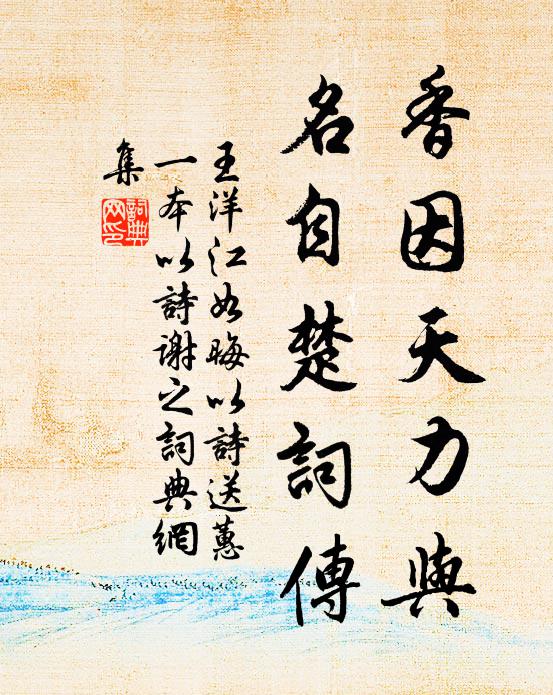 香因天力與
名自楚詞傳
王洋江如晦以詩送蕙
一本以詩謝之詞典網
集
詞典
网印